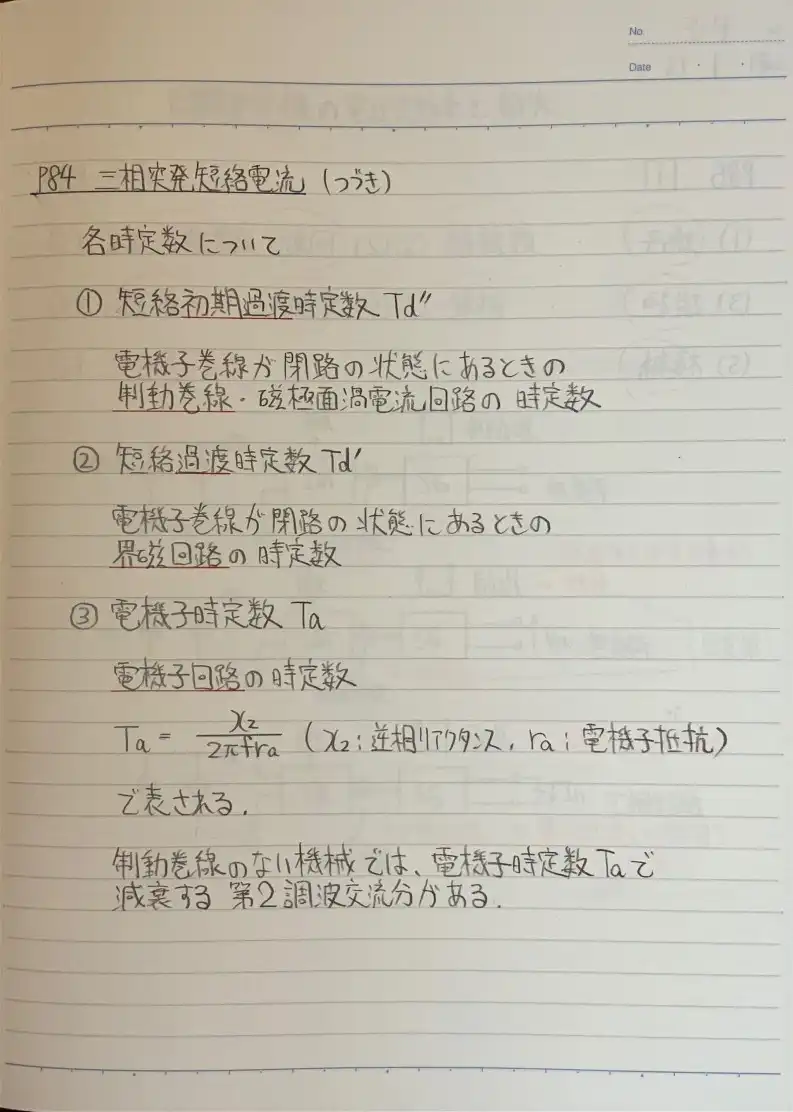 No.
Date
P84 三相突発短絡電流 (つづき)
各時定数について
① 短絡初期過渡時定数 Td″
電機子巻線が閉路の状態にあるときの
制動巻線・磁極面渦電流回路の時定数
② 短絡過渡時定数 Td′
電機子巻線が閉路の状態にあるときの
界磁回路の時定数
③ 電機子時定数 Ta
電機子回路の時定数
Ta = x2/2πfra (x2:逆相リアクタンス, ra:電機子抵抗)
で表される.
制動巻線のない機械では、電機子時定数Taで
減衰する第2調波交流分がある.